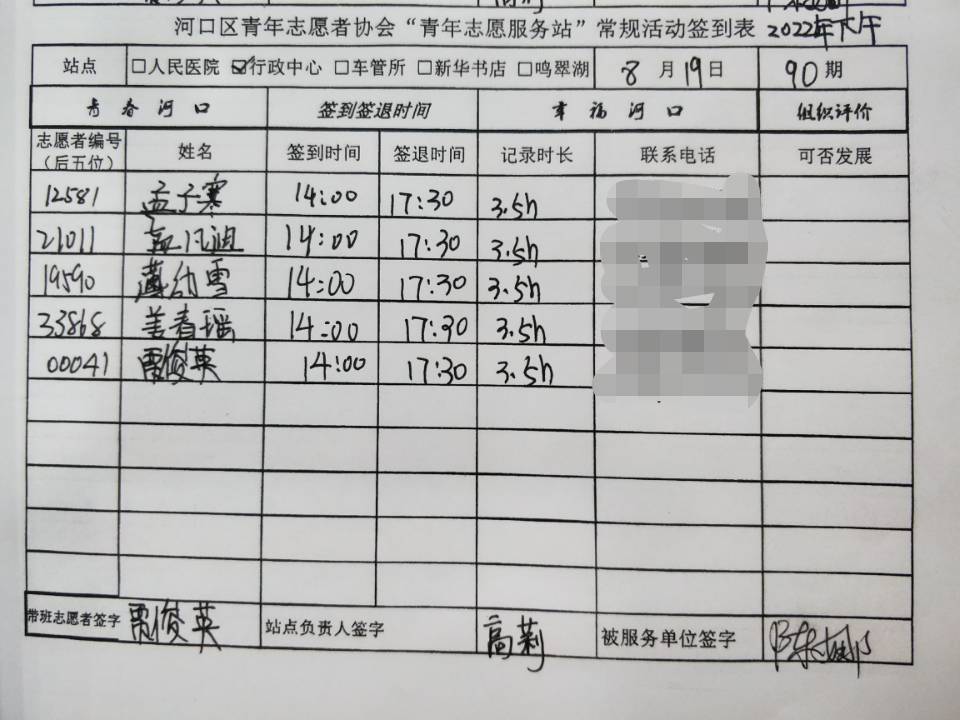 河口区青年志愿者协会“青年志愿服务站”常规活动签到表 2022年下午
站点 □人民医院 ☑行政中心 □车管所 □新华书店 □鸣翠湖 8月19日 90期
青春河口 签到签退时间 幸福河口 组织评价
志愿者编号（后五位） 姓名 签到时间 签退时间 记录时长 联系电话 可否发展
12581 孟子寒 14:00 17:30 3.5h
21011 14:00 17:30 3.5h
19590 薄幼雪 14:00 17:30 3.5h
33868 姜春瑶 14:00 17:30 3.5h
00041 贾俊英 14:00 17:30 3.5h
带班志愿者签字 贾俊英 站点负责人签字 高莉 被服务单位签字